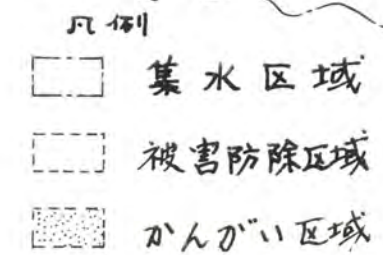 凡例
集水区域
被害防除区域
かんがい区域